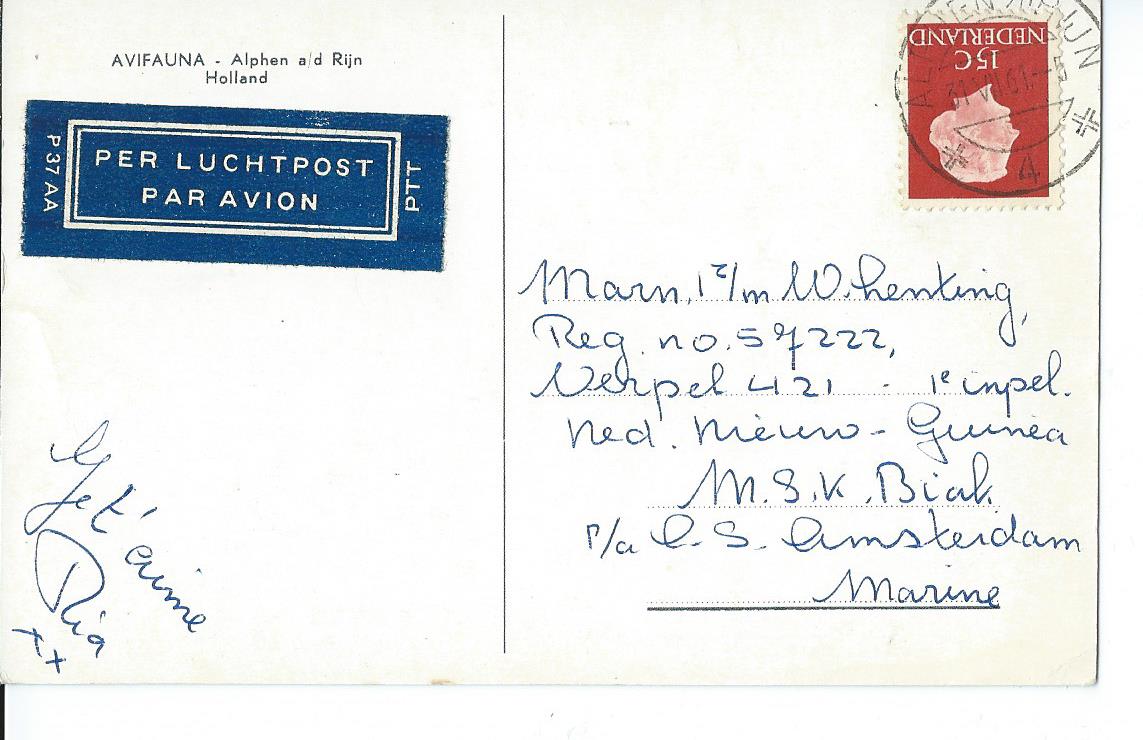 AVIFAUNA - Alphen a/d Rijn
Holland
P 37 AA
PER LUCHTPOST
PAR AVION
PTT
NEDERLAND
15C
ALPHEN A/D RIJN
31 VII 61 - 5
4
Marn. 1e/m W. Henting,
Reg. no. 57222,
Verpel 421 - 1e inpel.
Ned. Nieuw-Guinea
M.S.K. Biak.
p/a C. S. Amsterdam
Marine
Je t'aime
Ria
xx